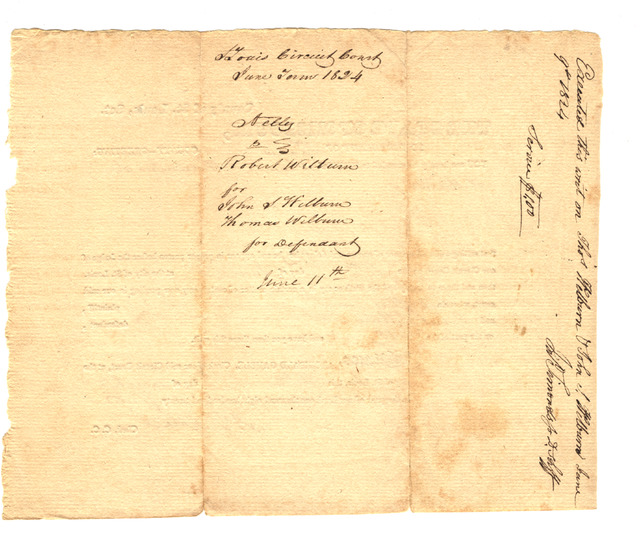 St Louis Circuit Court
June Term 1824
Nelly
vs
Robert Wilburn
for
John S Wilburn
Thomas Wilburn
for Defendant
June 11th
Executed this writ on Thos Wilburn & John S. Wilburn June
9th 1824
Service $1,00
Simonds jr D Shff